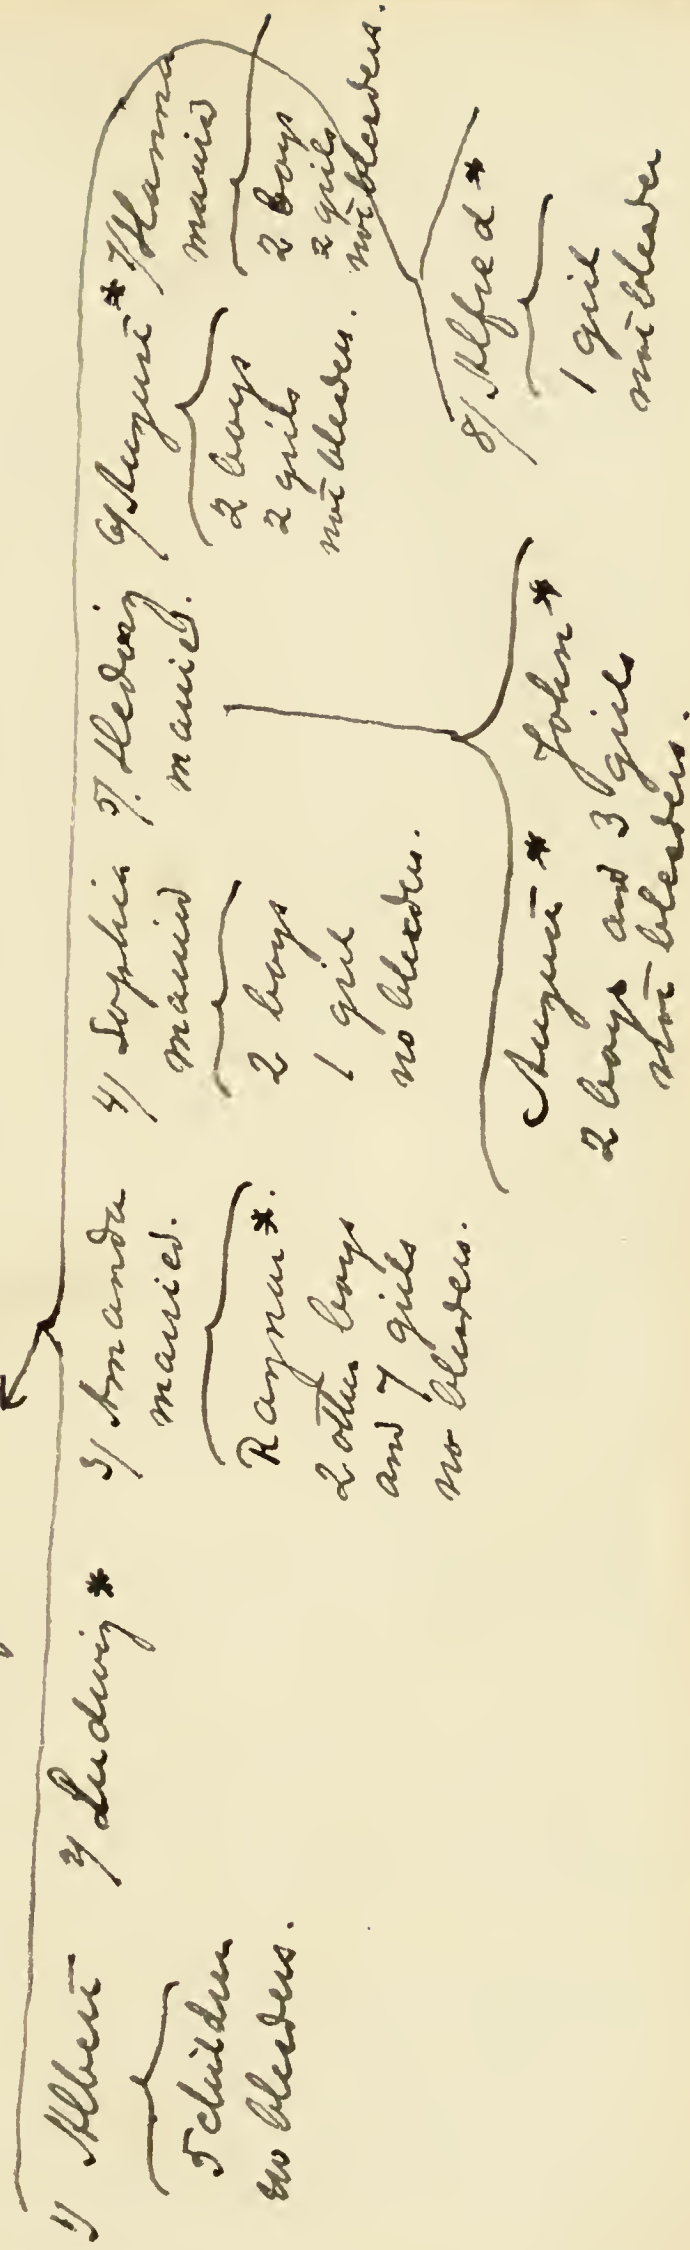 1/ Albert
5 children
no bleeders.
2/ Ludwig *
3/ Amanda
married.
Raynar *.
2 other boys
and 7 girls
no bleeders.
4/ Sophia
married
2 boys
1 girl
no bleeders.
5/. Hedwig
married.
August * John *
2 boys and 3 girls
not bleeders.
6/ August *
2 boys
2 girls
not bleeders.
7/ Hanna
married
2 boys
2 girls
not bleeders.
8/ Alfred *
1 girl
not bleeder